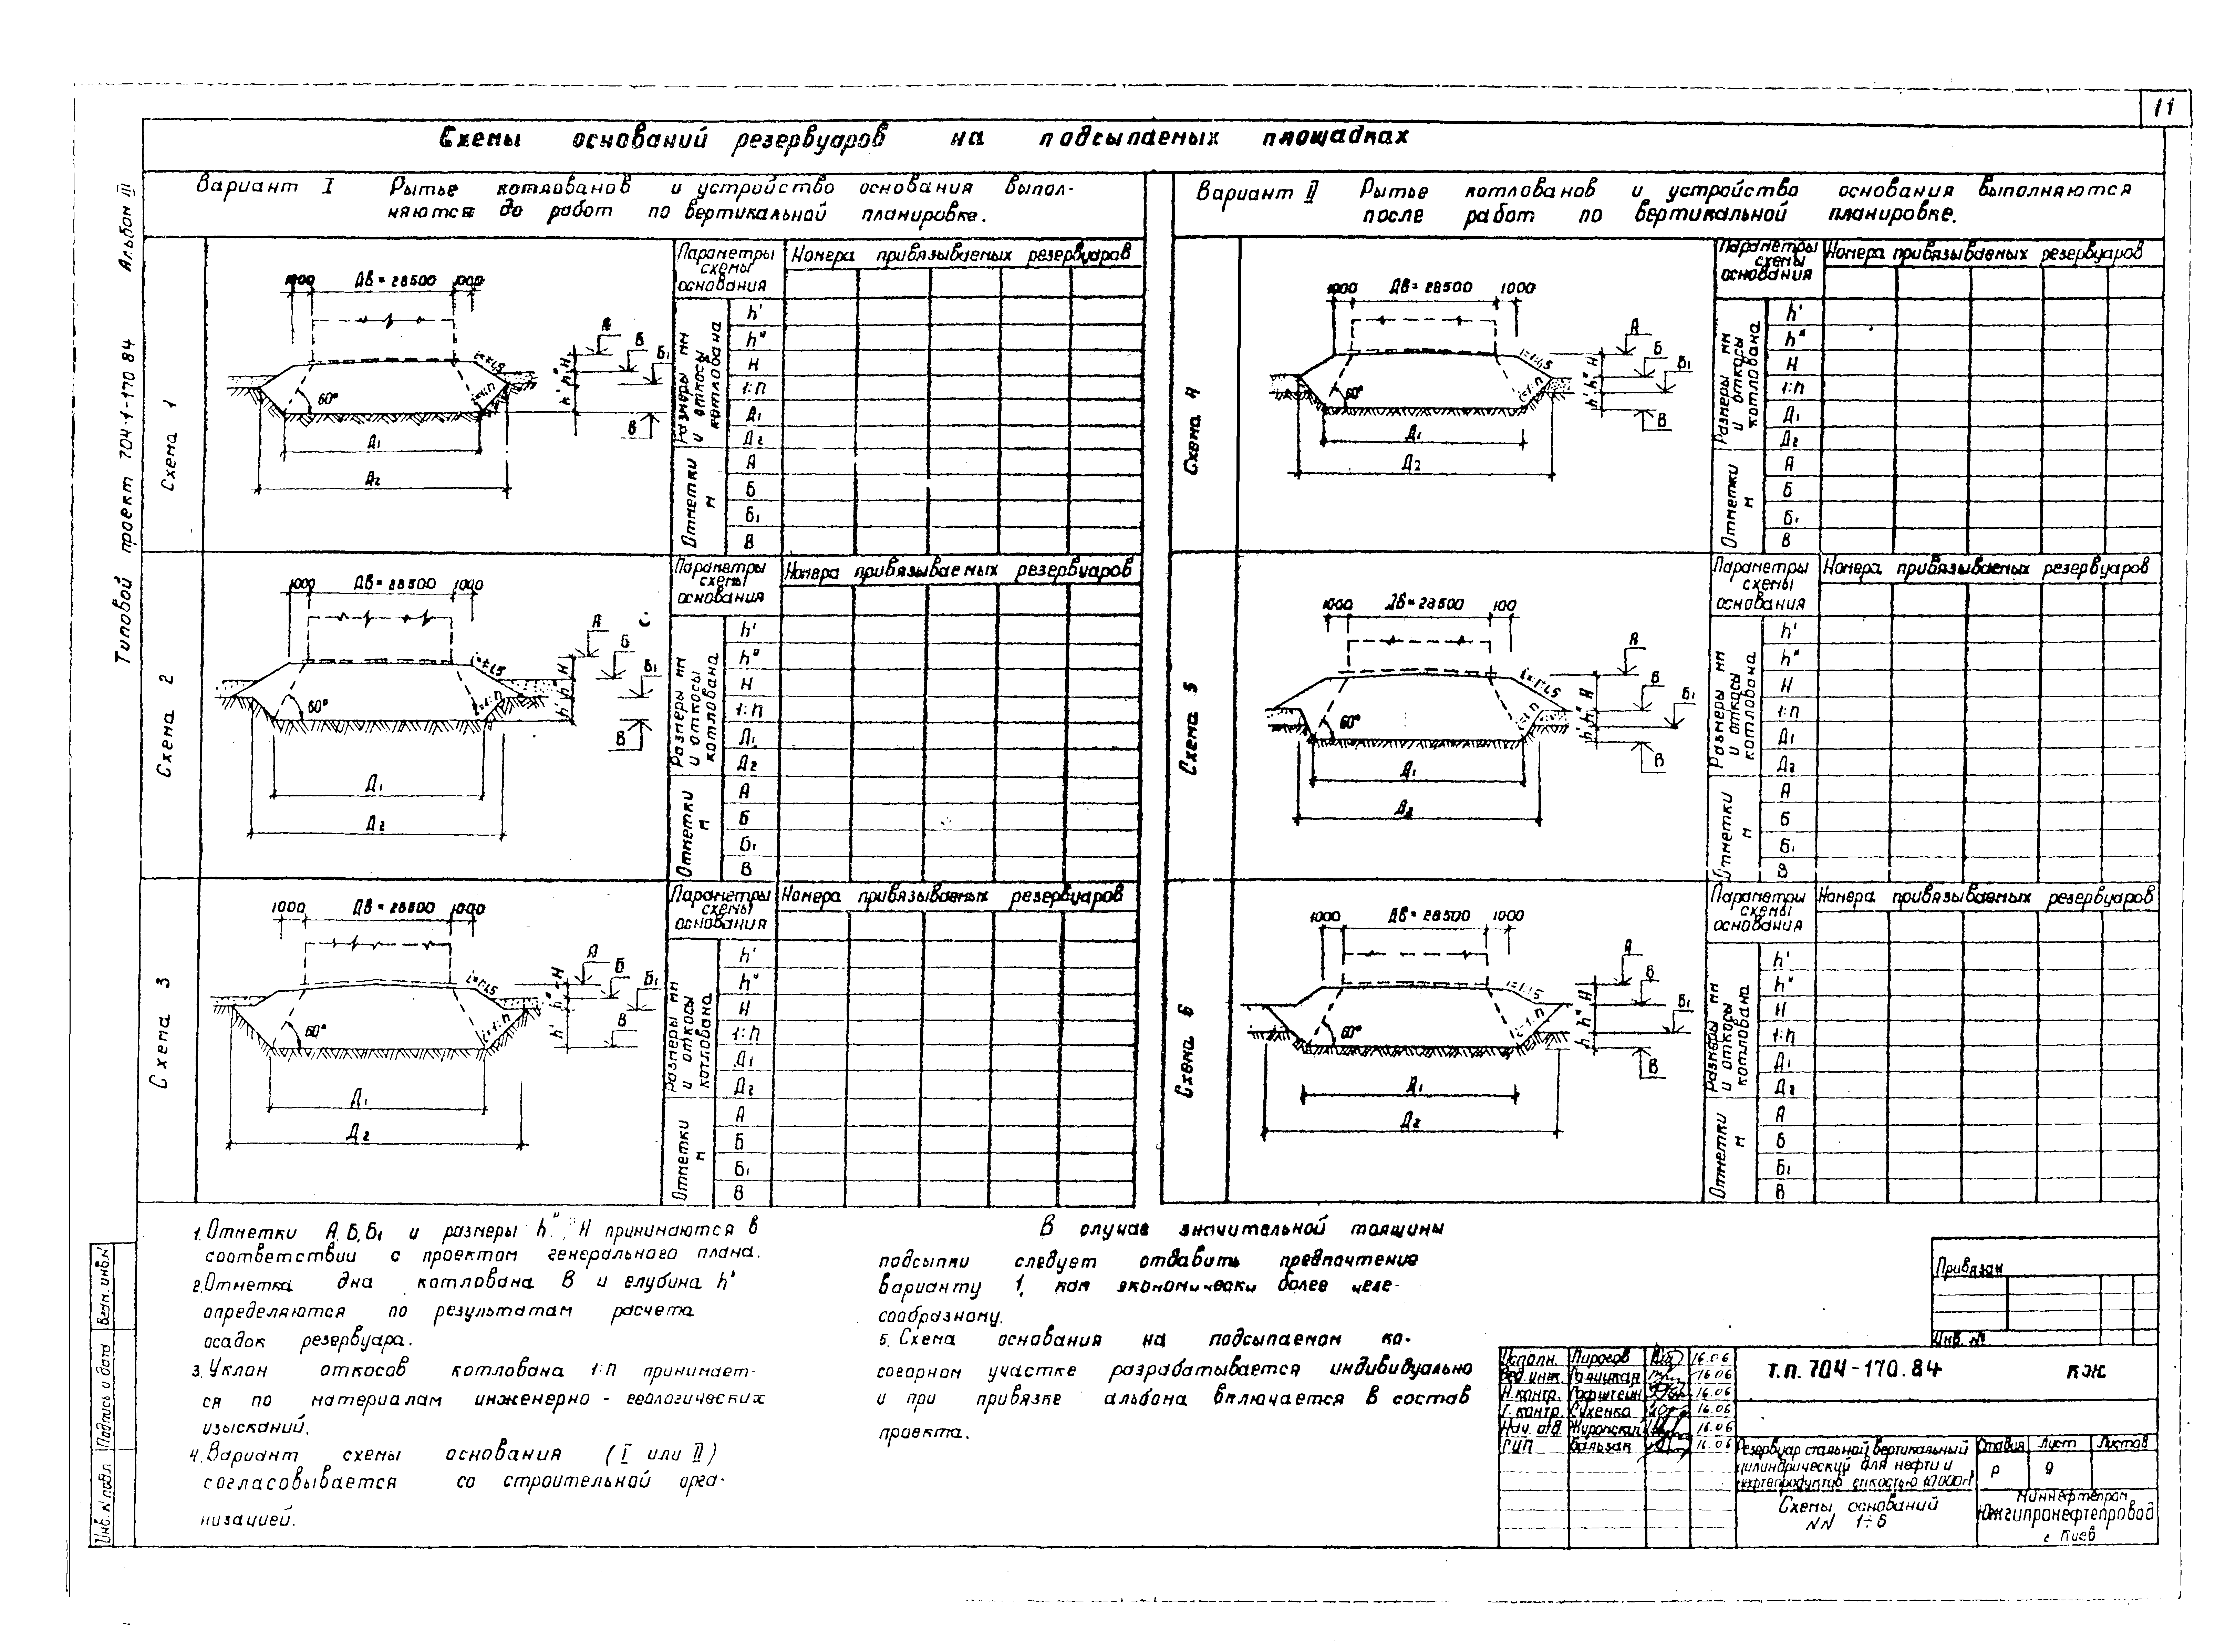 11
Схемы оснований резервуаров на подсыпаемых площадках
Типовой проект 704-1-170 84 Альбом III
Вариант I Рытье котлованов и устройство основания выпол-
няются до работ по вертикальной планировке.
Схема 1
1000 Дв = 28500 1000
А
Б
Б1
В
Н
h"
h'
60°
i=1:n
Д1
Д2
Параметры схемы основания
Номера привязываемых резервуаров
Размеры мм и откосы котлована
h'
h"
Н
1:п
Д1
Д2
Отметки м
А
Б
Б1
В
Схема 2
1000 Дв = 28500 1000
А
Б
Б1
В
Н
h"
h'
60°
i=1:n
Д1
Д2
Параметры схемы основания
Номера привязываемых резервуаров
Размеры мм и откосы котлована
h'
h"
Н
1:п
Д1
Д2
Отметки м
А
Б
Б1
В
Схема 3
1000 Дв = 28500 1000
А
Б
Б1
В
Н
h"
h'
60°
i=1:1,5
i=1:n
Д1
Д2
Параметры схемы основания
Номера привязываемых резервуаров
Размеры мм и откосы котлована
h'
h"
Н
1:п
Д1
Д2
Отметки м
А
Б
Б1
В
Вариант II Рытье котлованов и устройство основания выполняются
после работ по вертикальной планировке.
Схема 4
1000 Дв = 28500 1000
А
Б
Б1
В
Н
h"
h'
60°
i=1:1,5
i=1:n
Д1
Д2
Параметры схемы основания
Номера привязываемых резервуаров
Размеры мм и откосы котлована
h'
h"
Н
1:п
Д1
Д2
Отметки м
А
Б
Б1
В
Схема 5
1000 Дв = 28500 100
Б1
В
h"
h'
60°
i=1:1,5
i=1:n
Д1
Д2
Параметры схемы основания
Номера привязываемых резервуаров
Размеры мм и откосы котлована
h'
h"
Н
1:п
Д1
Д2
Отметки м
А
Б
Б1
В
Схема 6
1000 Дв = 28500 1000
А
Б1
В
Н
h"
h'
60°
i=1:1,5
i=1:n
Д1
Д2
Параметры схемы основания
Номера привязываемых резервуаров
Размеры мм и откосы котлована
h'
h"
Н
1:п
Д1
Д2
Отметки м
А
Б
Б1
В
1. Отметки А, Б, Б1 и размеры h", Н принимаются в
соответствии с проектом генерального плана.
2. Отметка дна котлована В и глубина h'
определяются по результатам расчета
осадок резервуара.
3. Уклон откосов котлована 1:п принимает-
ся по материалам инженерно - геологических
изысканий.
4. Вариант схемы основания (I или II)
согласовывается со строительной орга-
низацией.
В случае значительной толщины
подсыпки следует отдавать предпочтение
варианту 1, как экономически более целе-
сообразному.
5. Схема основания на подсыпаемом ко-
согорном участке разрабатывается индивидуально
и при привязке альбома включается в состав
проекта.
Привязан
Инв. №
Исполн. Пирогов 16.06
Вед. инж. Галицкая 16 06
Н. контр. Гофштейн 16.06
Т. контр. Сухенко 16.06
Нач. отд. 16.06
ГИП Бальзак 16.06
Т.П. 704-170.84 КЖ
Резервуар стальной вертикальный
цилиндрический для нефти и
нефтепродуктов емкостью 10000м³
Стадия Лист Листов
Р 9
Схемы оснований
NN 1÷6
Миннефтепром
Южгипронефтепровод
г. Киев
Инв. N подл. Подпись и дата Взам. инв. N